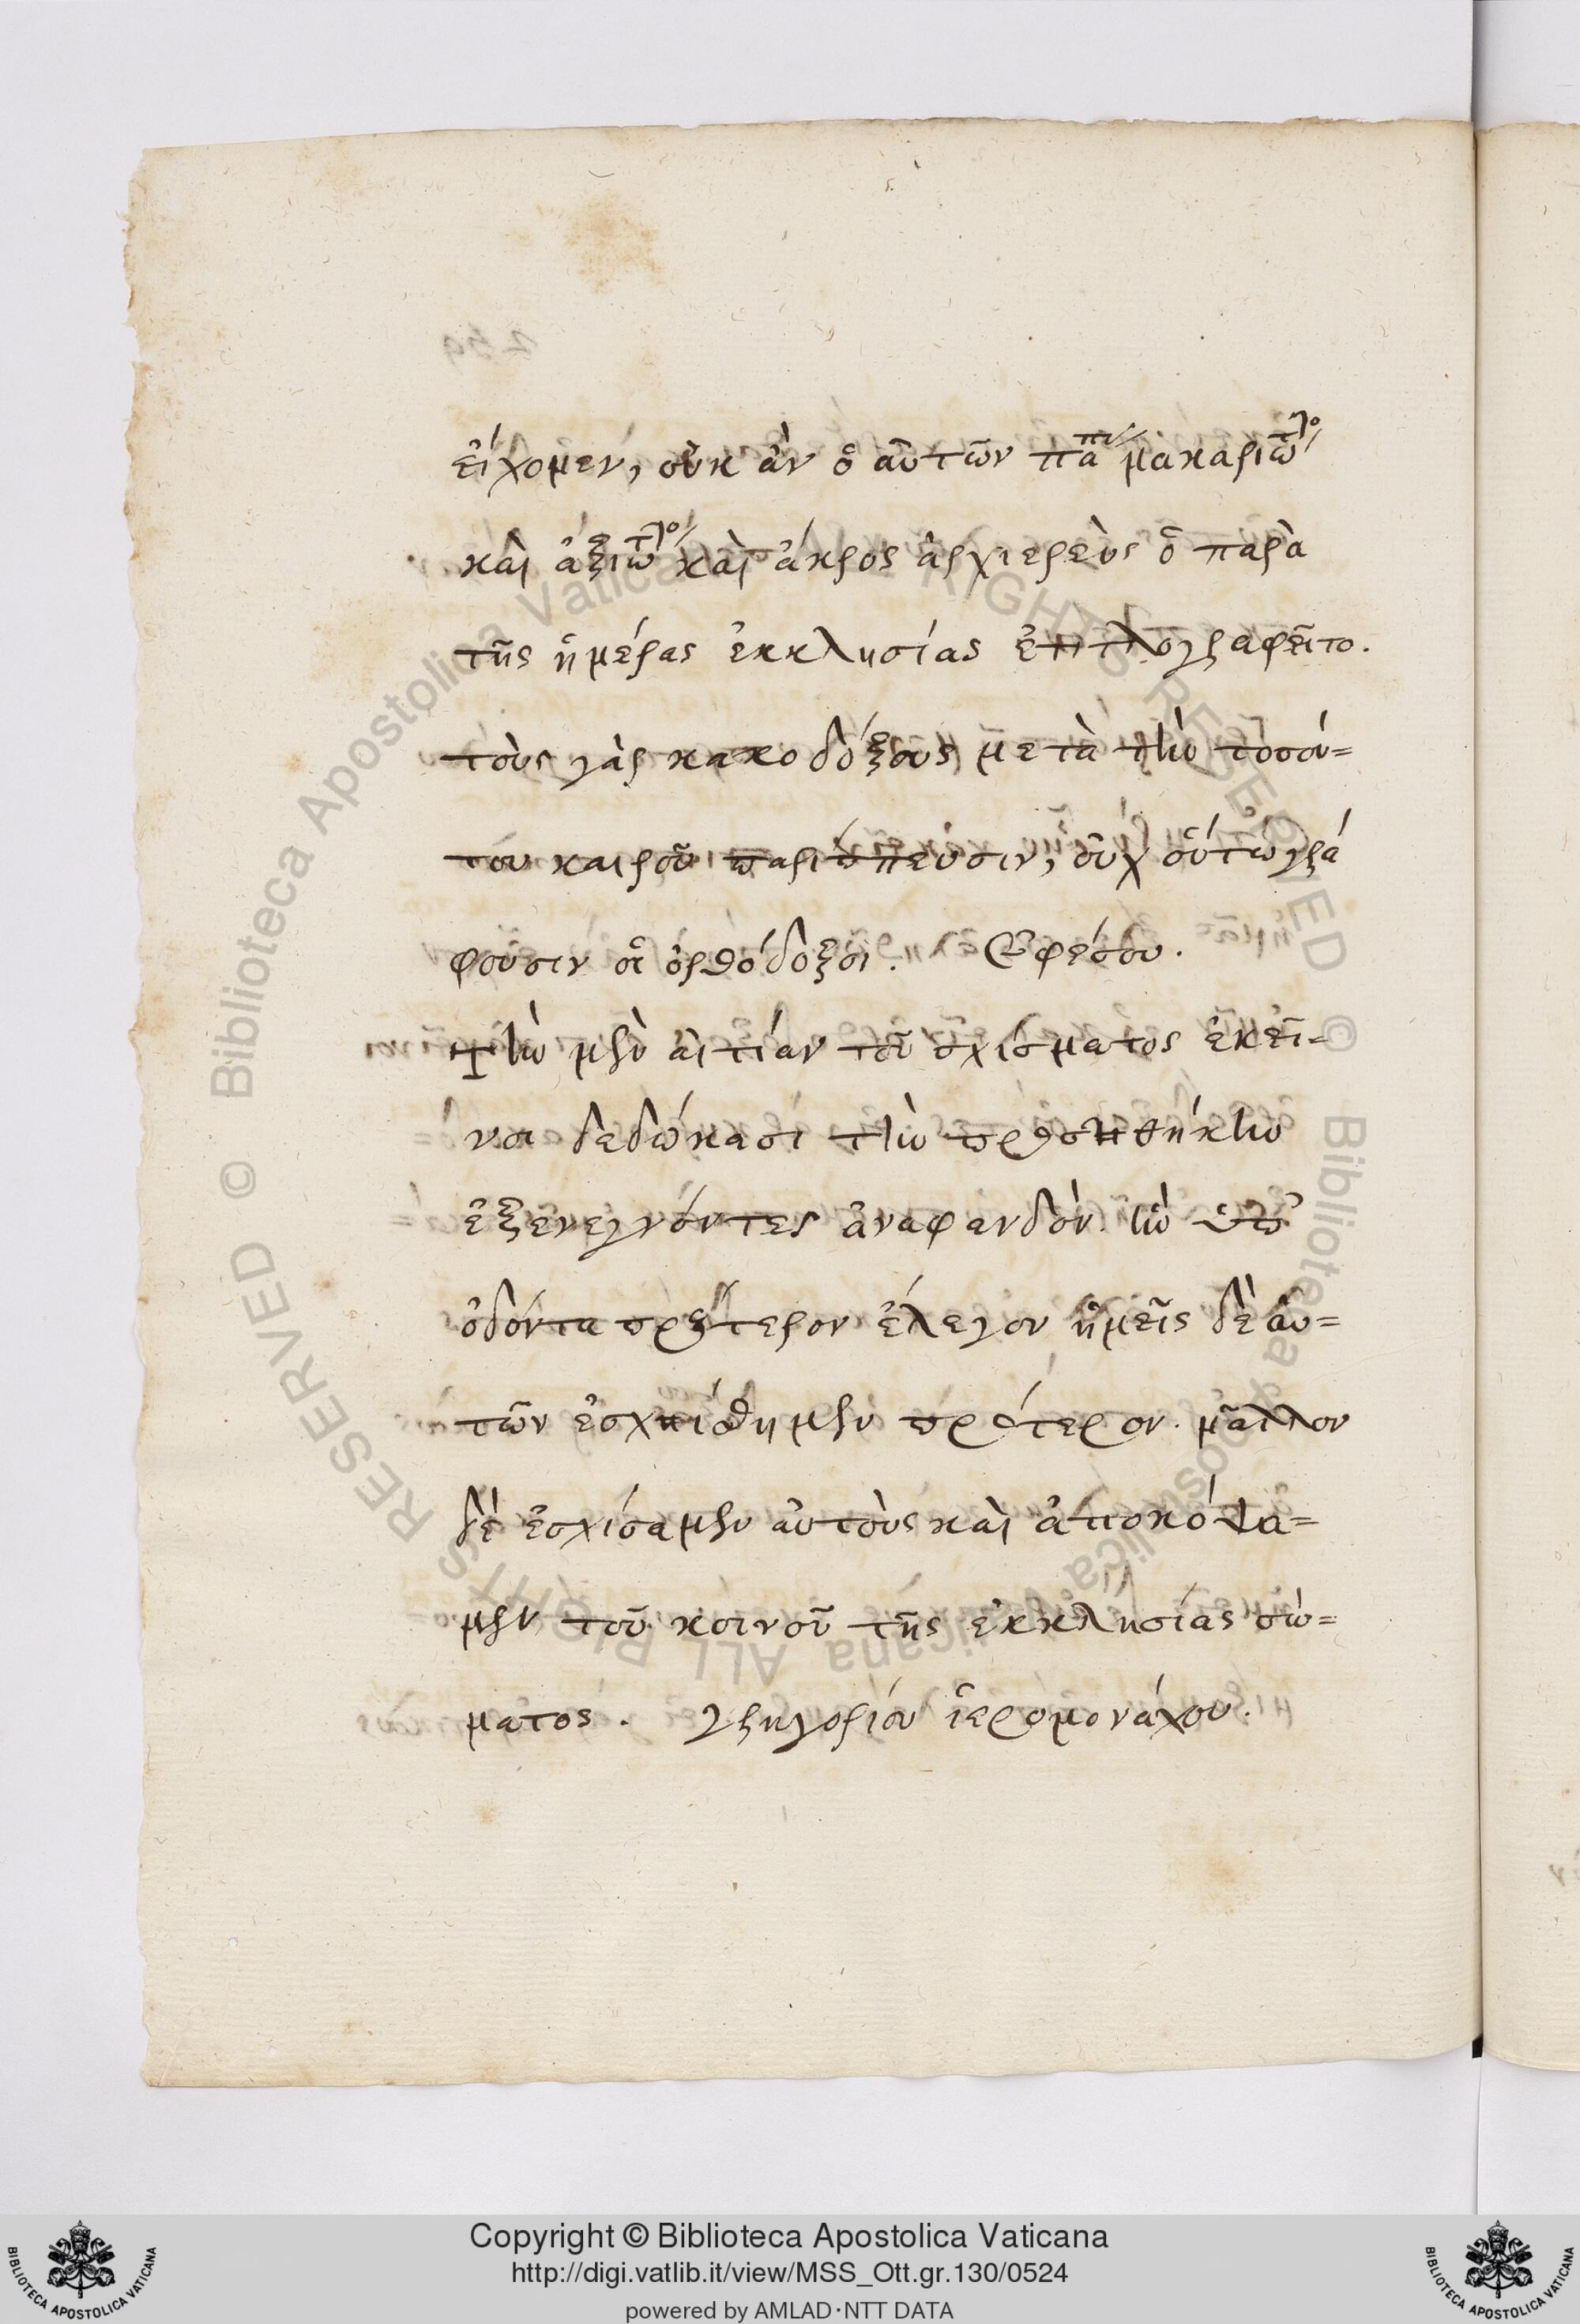 εἴχομεν, οὐκ ἂν ὁ αὐτῶν πάπας μακαριώτατος
καὶ ἁγιώτατος καὶ ἄκρος ἀρχιερεὺς ὁ παρὰ
τῆς ἡμέρας ἐκκλησίας
τοὺς γὰρ κακοδόξους μετὰ τὴν τοσού=
του καιροῦ οὐχ οὕτω γρά
φουσιν οἱ ὀρθόδοξοι. Ἐφέσου.
τὴν μὲν αἰτίαν τοῦ σχίσματος ἐκεῖ=
νοι δεδώκασι τὴν προσθήκην
ἐξενεγκόντες ἀναφανδόν. ἣν ὑπ'
ὀδόντα πρότερον ἔλεγον ἡμεῖς δὲ αὐ=
τῶν ἐσχίσθημεν πρότερον. μᾶλλον
δὲ ἐσχίσαμεν αὐτοὺς καὶ ἀπεκόψα=
μεν τοῦ κοινοῦ τῆς ἐκκλησίας σώ=
ματος. γρηγορίου ἱερομονάχου.
Copyright © Biblioteca Apostolica Vaticana
http://digi.vatlib.it/view/MSS_Ott.gr.130/0524
powered by AMLAD·NTT DATA
BIBLIOTECA APOSTOLICA VATICANA
BIBLIOTECA APOSTOLICA VATICANA
© Biblioteca Apostolica Vaticana ALL RIGHTS RESERVED